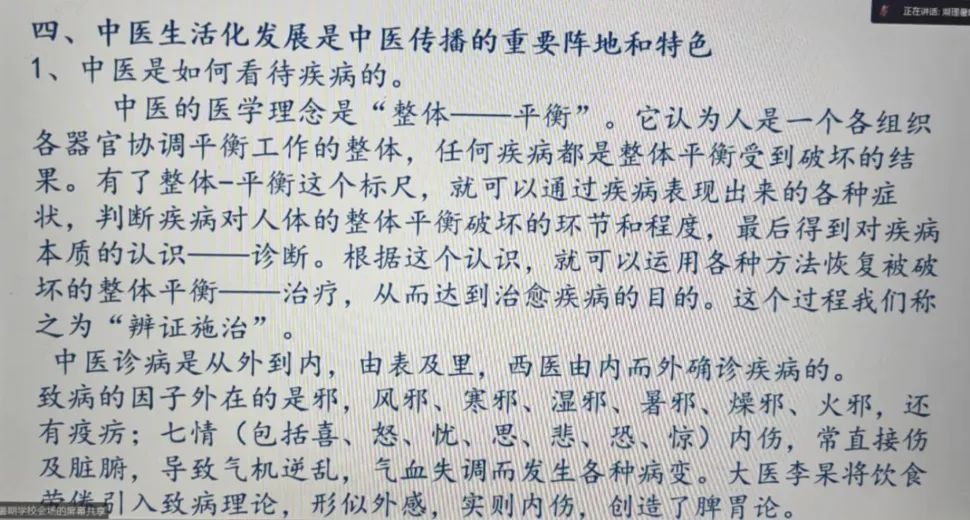 正在讲话:
四、中医生活化发展是中医传播的重要阵地和特色
1、中医是如何看待疾病的。
中医的医学理念是“整体——平衡”。它认为人是一个各组织
各器官协调平衡工作的整体，任何疾病都是整体平衡受到破坏的结
果。有了整体-平衡这个标尺，就可以通过疾病表现出来的各种症
状，判断疾病对人体的整体平衡破坏的环节和程度，最后得到对疾病
本质的认识——诊断。根据这个认识，就可以运用各种方法恢复被破
坏的整体平衡——治疗，从而达到治愈疾病的目的。这个过程我们称
之为“辨证施治”。
中医诊病是从外到内，由表及里，西医由内而外确诊疾病的。
致病的因子外在的是邪，风邪、寒邪、湿邪、暑邪、燥邪、火邪，还
有疫疠；七情（包括喜、怒、忧、思、悲、恐、惊）内伤，常直接伤
及脏腑，导致气机逆乱，气血失调而发生各种病变。大医李杲将饮食
引入致病理论，形似外感，实则内伤，创造了脾胃论。
暑期学校会场的屏幕共享